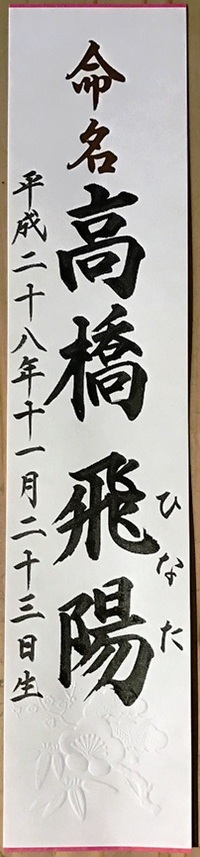 命名
高橋 飛陽
ひなた
平成二十八年十一月二十三日生